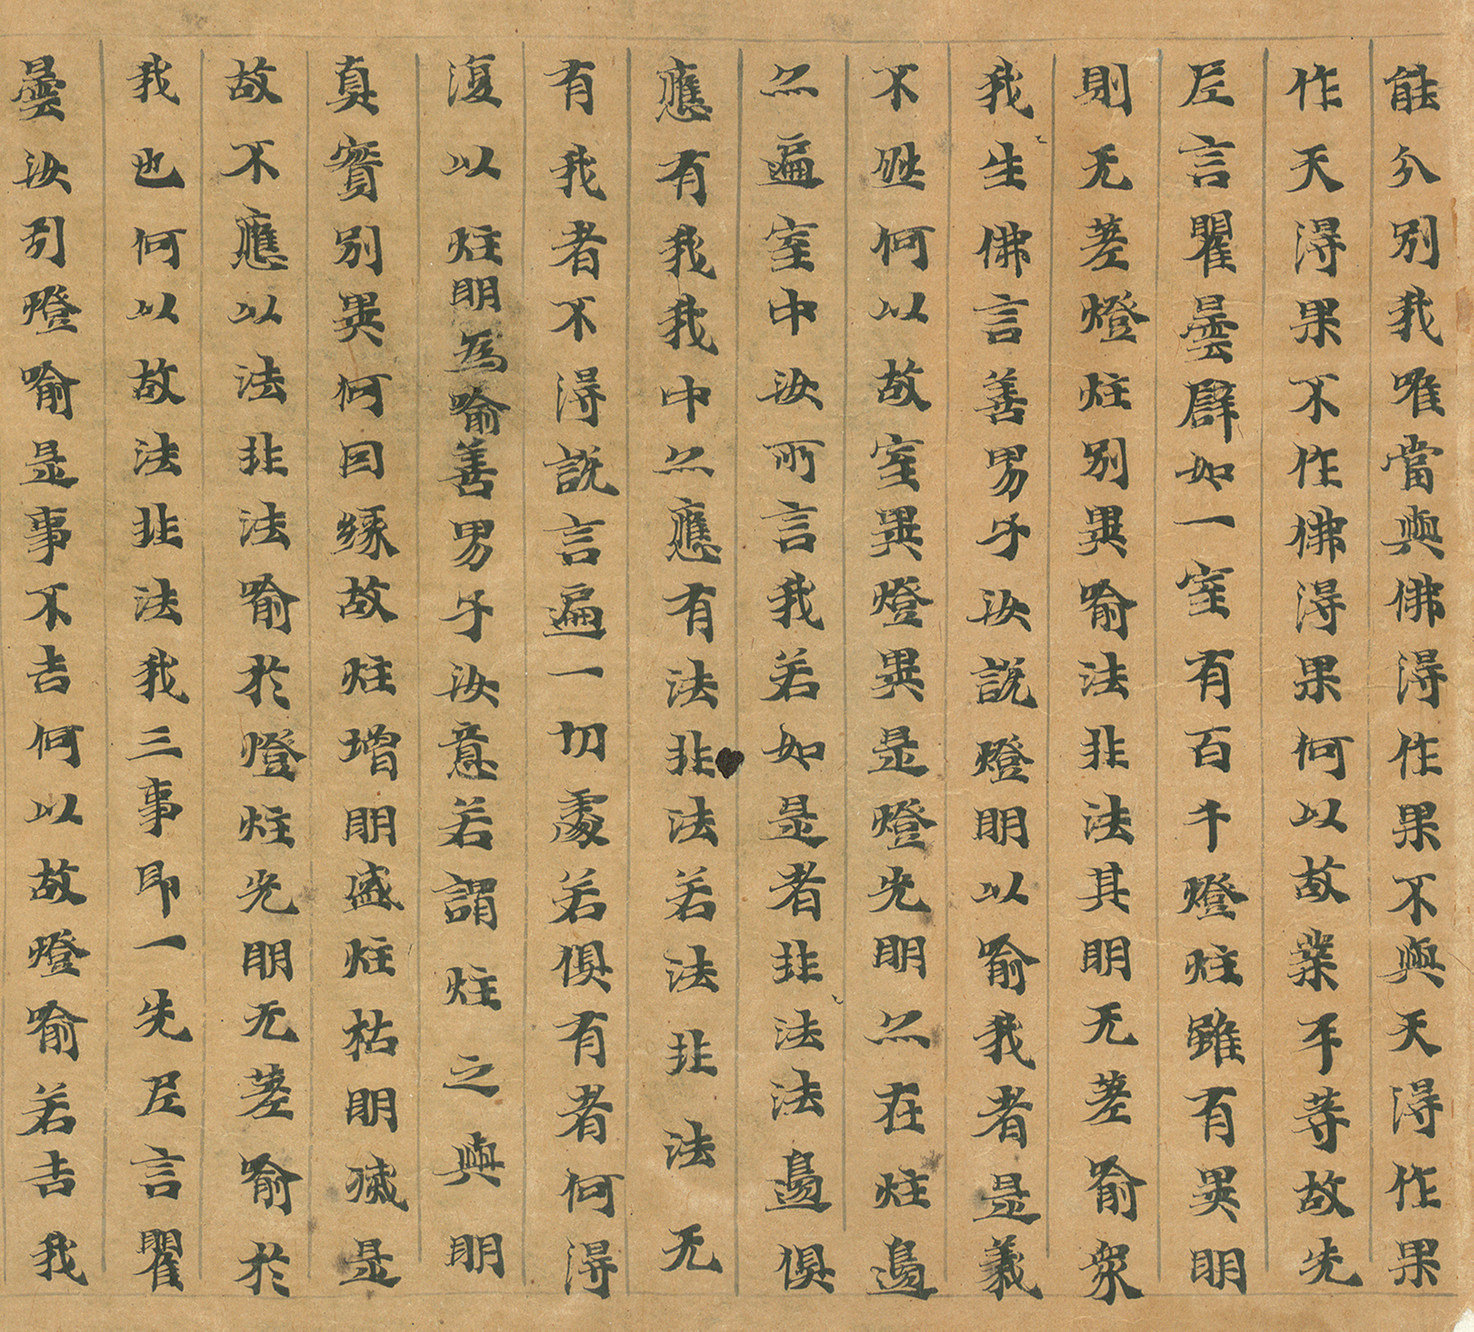 能分別我唯當與佛得作果不與天得作果
作天得果不作佛得果何以故業平等故先
尼言瞿曇譬如一室有百千燈炷雖有異明
則无差燈炷別異喻法非法其明无差喻衆
我生佛言善男子汝說燈明以喻我者是義
不然何以故室異燈異是燈光明亦在炷邊
亦遍室中汝所言我若如是者非法法邊俱
應有我我中亦應有法非法若法非法无
有我者不得說言遍一切處若俱有者何得
復以炷明為喻善男子汝意若謂炷之與明
真實別異何因緣故炷增明盛炷枯明滅是
故不應以法非法喻於燈炷光明无差喻於
我也何以故法非法我三事即一先尼言瞿
曇汝引燈喻是事不吉何以故燈喻若吉我